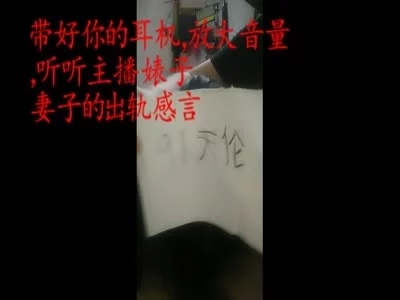 带好你的耳机,放大音量
,听听主播婊子
妻子的出轨感言
91天伦